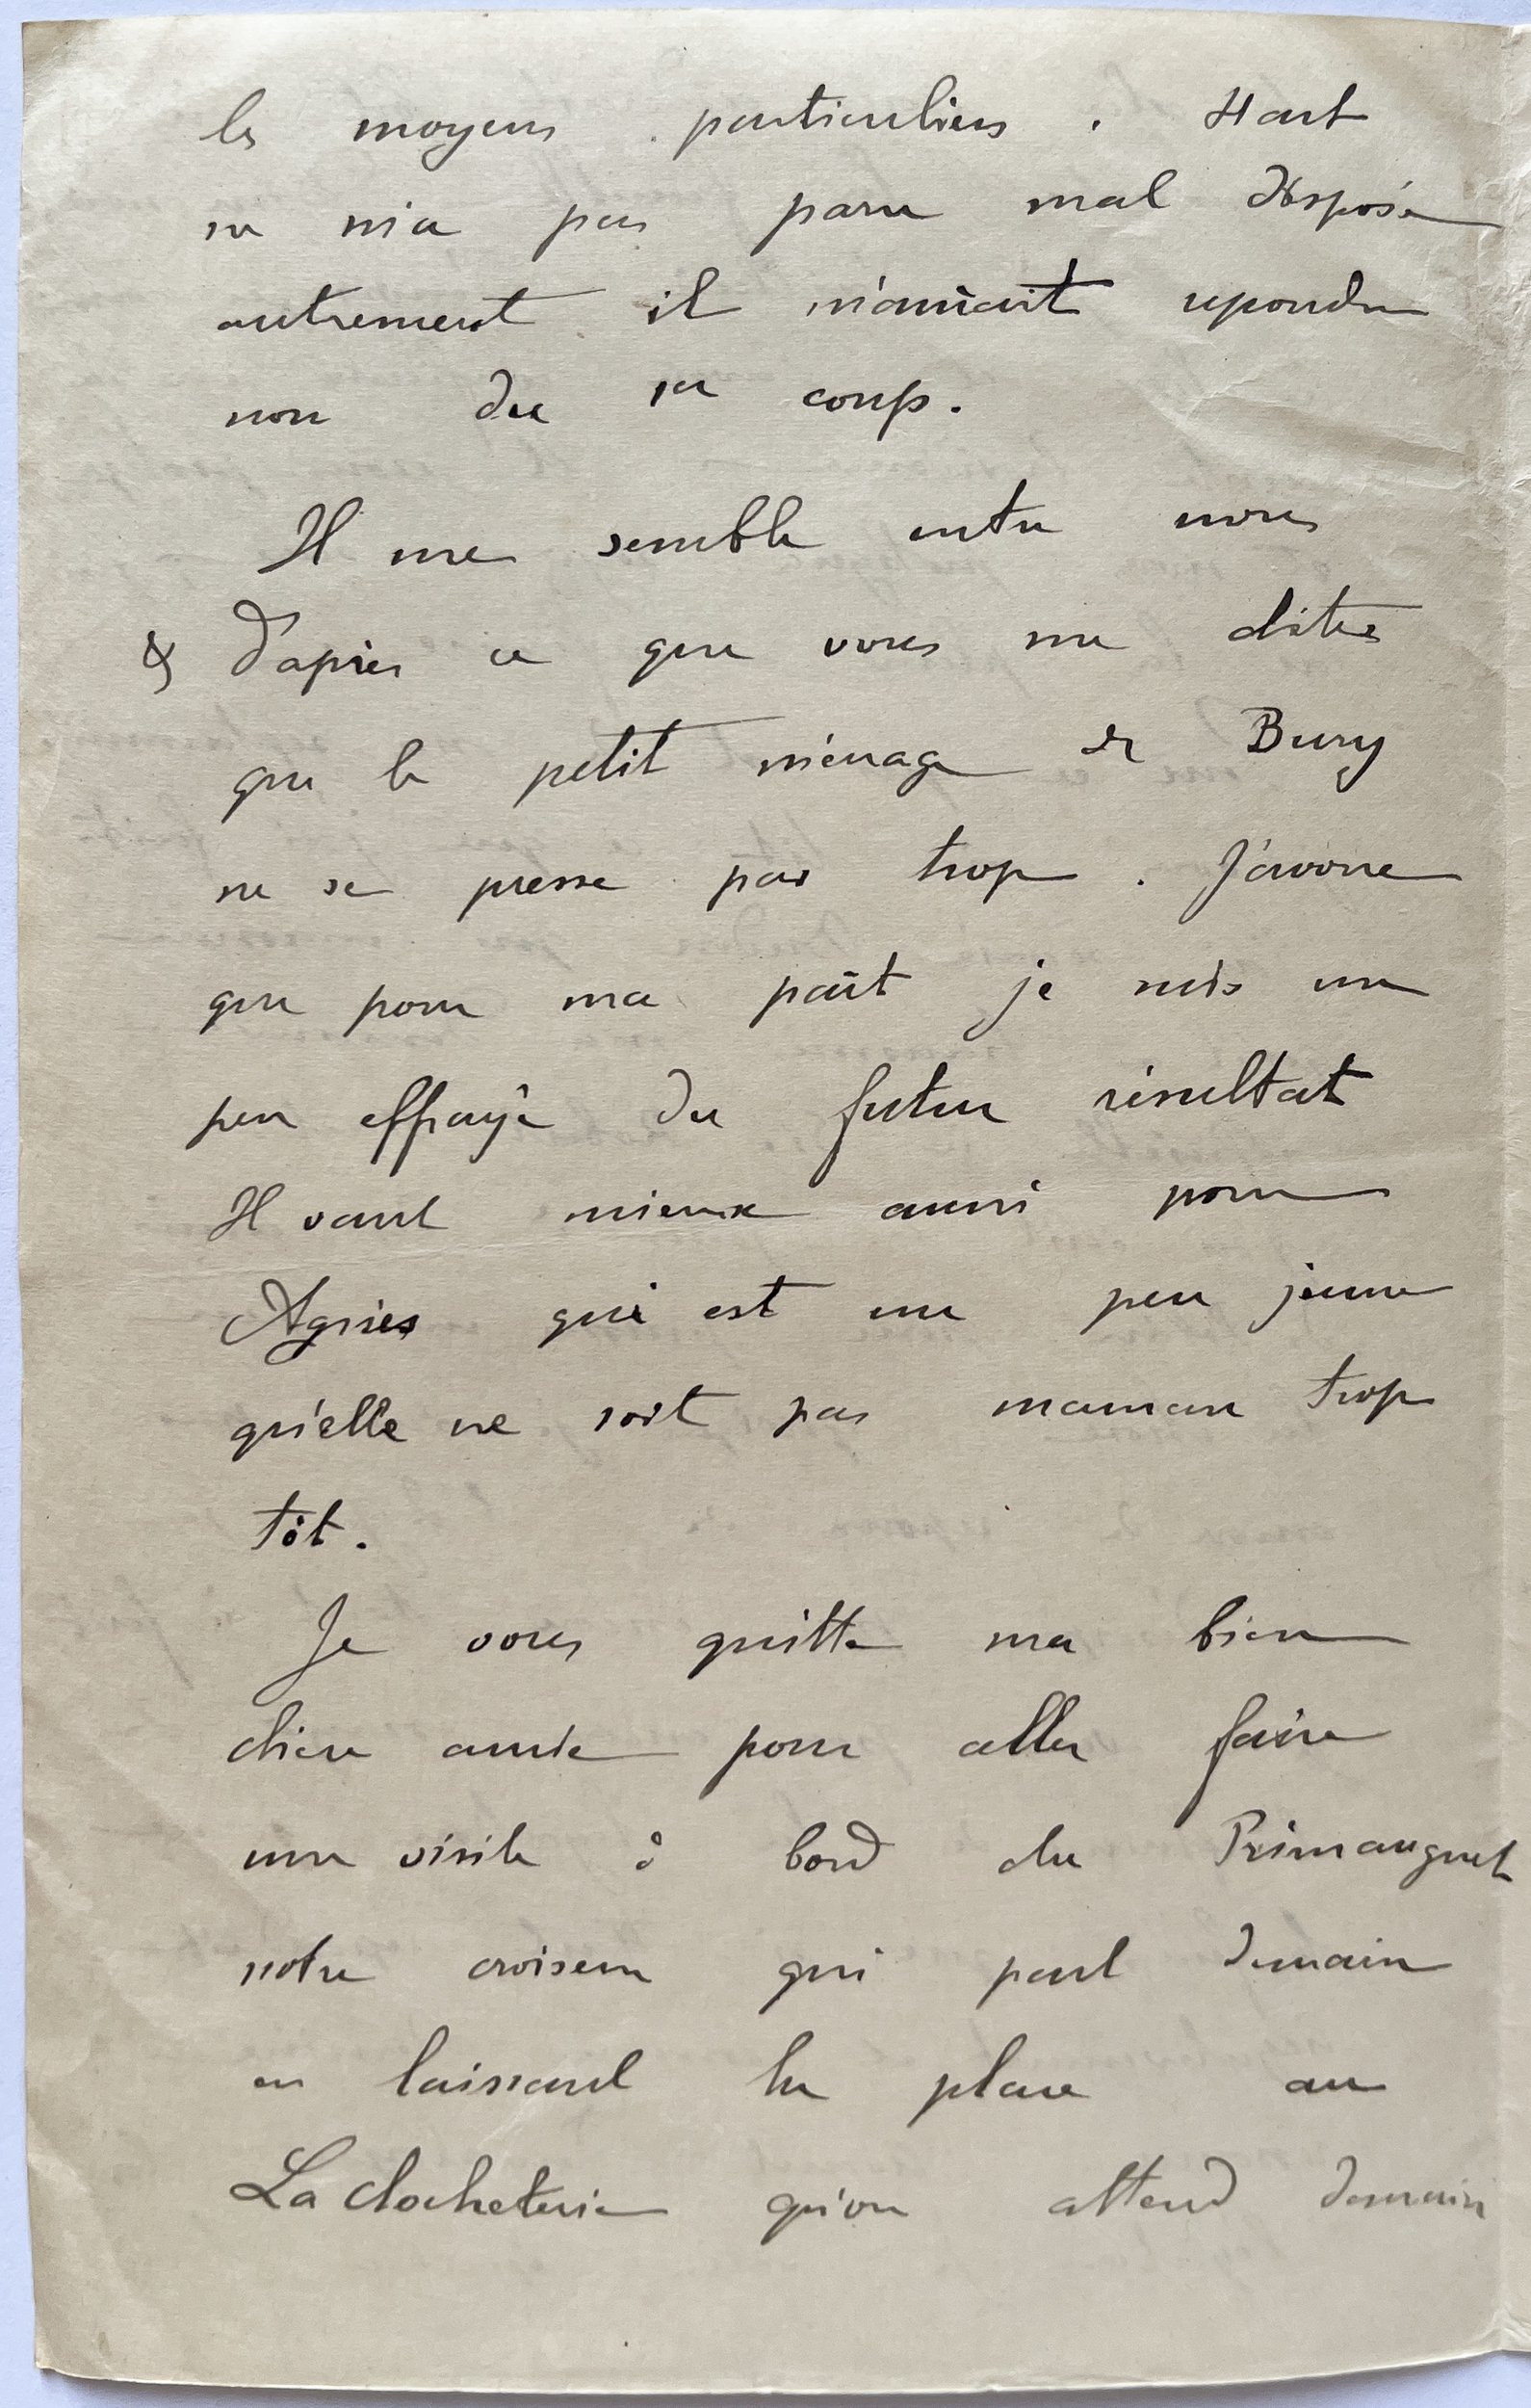 les moyens particuliers. Hart
ne m'a pas paru mal disposé
autrement il m'aurait repondu
non du 1er coup.
Il me semble entre nous
& d'après ce que vous me dites
que le petit ménage de Bury
ne se presse pas trop. J'avoue
que pour ma part je suis un
peu effrayé du futur résultat
Il vaut mieux aussi pour
Agnès qui est un peu jeune
qu'elle ne soit pas maman trop
tôt.
Je vous quitte ma bien
chère amie pour aller faire
une visite à bord du Primauguet
notre croiseur qui part demain
en laissant la place au
La Clocheterie qu'on attend demain